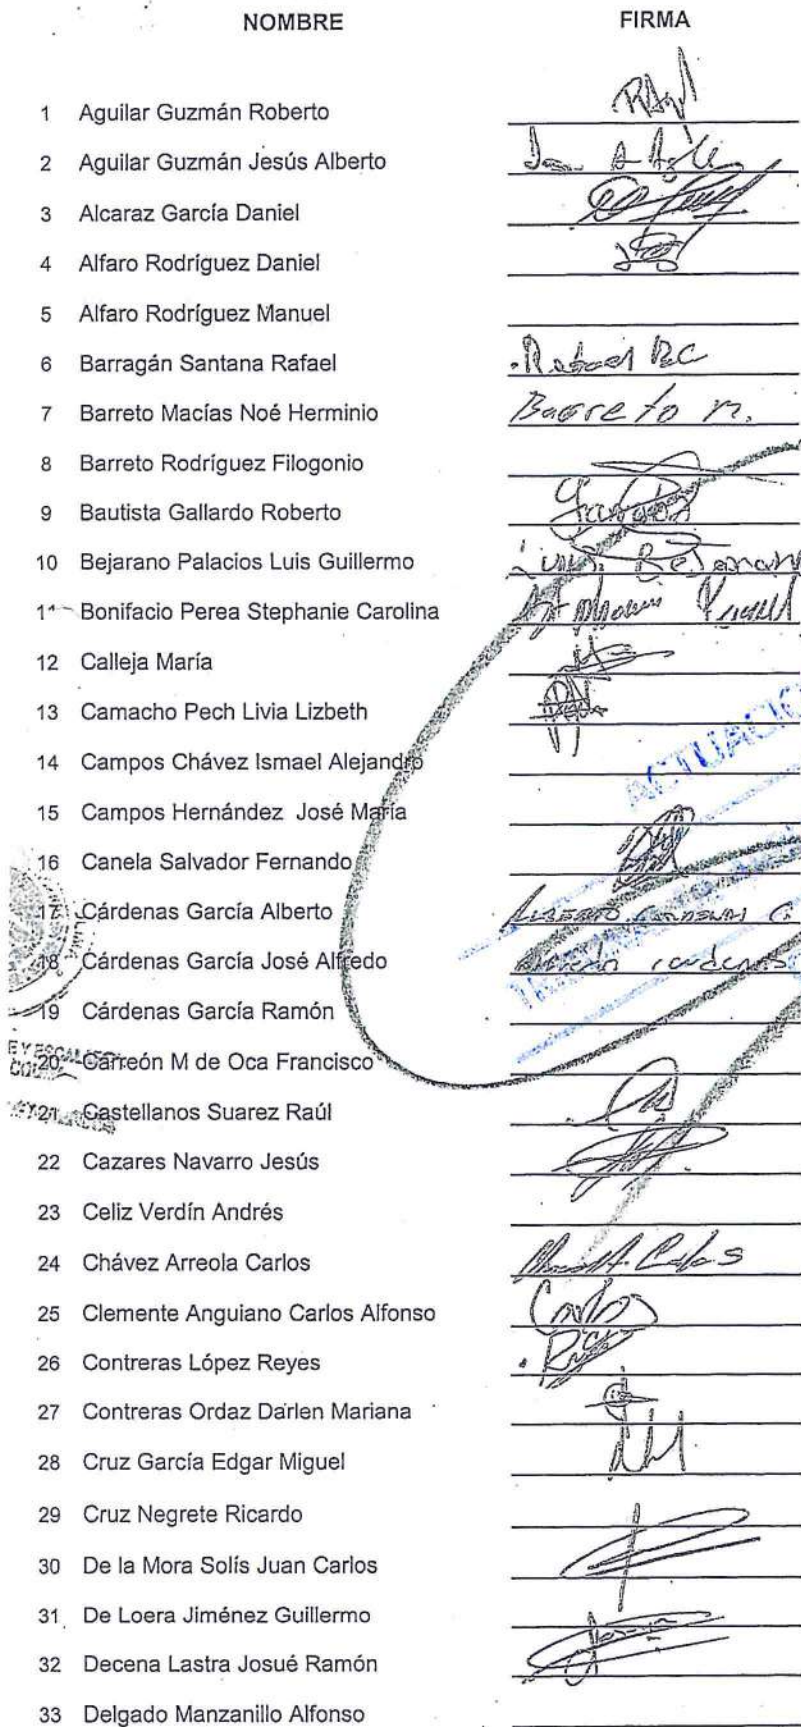 NOMBRE FIRMA
1 Aguilar Guzmán Roberto
2 Aguilar Guzmán Jesús Alberto
3 Alcaraz García Daniel
4 Alfaro Rodríguez Daniel
5 Alfaro Rodríguez Manuel
6 Barragán Santana Rafael Rafael
7 Barreto Macías Noé Herminio Barreto M.
8 Barreto Rodríguez Filogonio
9 Bautista Gallardo Roberto
10 Bejarano Palacios Luis Guillermo Luis Bejarano
11 Bonifacio Perea Stephanie Carolina
12 Calleja María
13 Camacho Pech Livia Lizbeth
14 Campos Chávez Ismael Alejandro
ACTUACIO
15 Campos Hernández José María
16 Canela Salvador Fernando
17 Cárdenas García Alberto Alberto Cardenas G.
18 Cárdenas García José Alfredo Alfredo cardenas
19 Cárdenas García Ramón
20 Carreón M de Oca Francisco
21 Castellanos Suarez Raúl
22 Cazares Navarro Jesús
23 Celiz Verdín Andrés
24 Chávez Arreola Carlos Carlos
25 Clemente Anguiano Carlos Alfonso Carlos
26 Contreras López Reyes
27 Contreras Ordaz Darlen Mariana
28 Cruz García Edgar Miguel
29 Cruz Negrete Ricardo
30 De la Mora Solís Juan Carlos
31 De Loera Jiménez Guillermo
32 Decena Lastra Josué Ramón
33 Delgado Manzanillo Alfonso